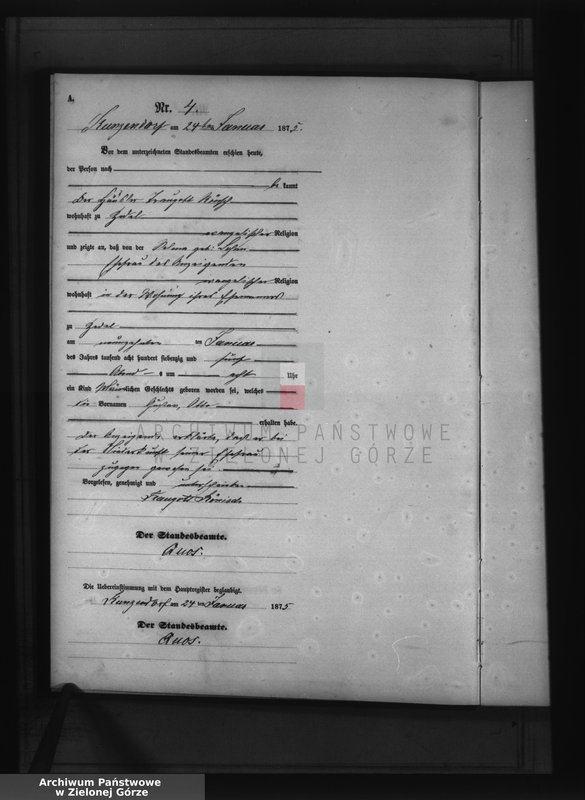 A.
Nr. 4.
Kunzendorf am 24ten Januar 1875.
Vor dem unterzeichneten Standesbeamten erschien heute,
der Person nach
be kannt
der Häusler Traugott
wohnhaft zu Zedel
evangelischer Religion
und zeigte an, daß von der Selma geb:
Ehefrau des Anzeigenden
evangelischer Religion
wohnhaft in der Wohnung ihres Ehemannes
zu Zedel
am neunzehnten ten Januar
des Jahres tausend acht hundert siebenzig und fünf
Abend s um acht Uhr
ein Kind Männlichen Geschlechts geboren worden sei, welches
die Vornamen Gustav, Otto
erhalten habe.
Der Anzeigende erklärte, daß er bei
der Niederkunft seiner Ehefrau
zugegen gewesen sei
Vorgelesen, genehmigt und unterschrieben
Traugott
Der Standesbeamte.
Quos.
Die Uebereinstimmung mit dem Hauptregister beglaubigt.
Kunzendorf am 24 ten Januar 1875
Der Standesbeamte.
Quos.
ARCHIWUM PAŃSTWOWE
W ZIELONEJ GÓRZE
Archiwum Państwowe
w Zielonej Górze